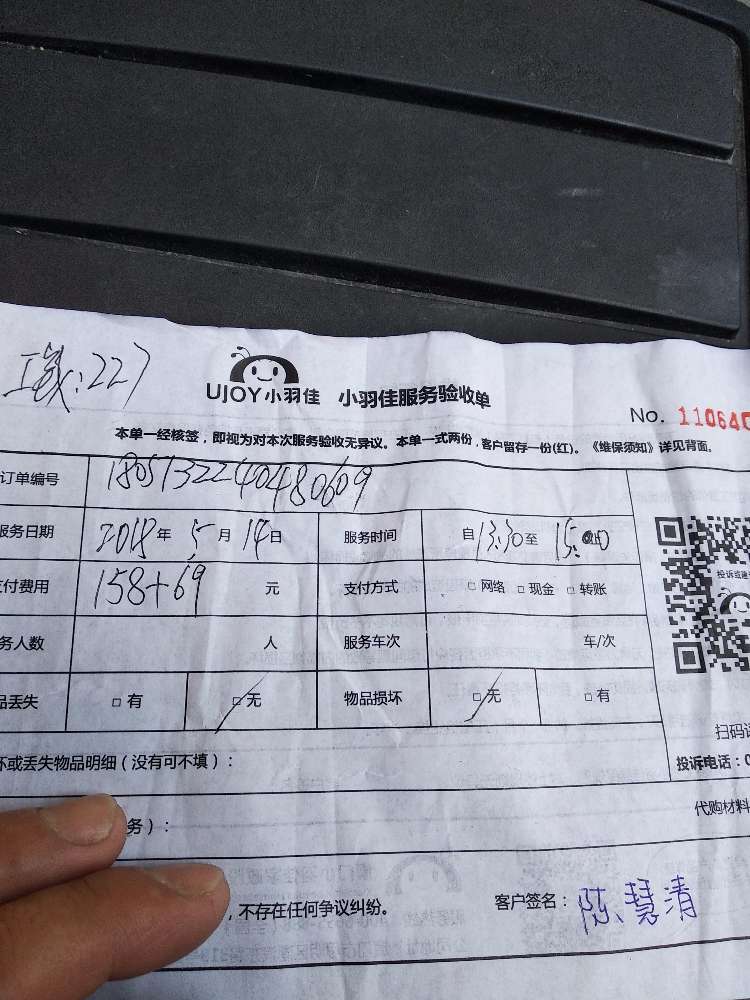 227
UJOY小羽佳 小羽佳服务验收单
No. 110640
本单一经核签，即视为对本次服务验收无异议。本单一式两份，客户留存一份(红)。《维保须知》详见背面。
订单编号 18051322404480609
服务日期 2018年5月14日 服务时间 自13:30至15:00
付费用 158+69元 支付方式 □网络 □现金 □转账
务人数 人 服务车次 车/次
品丢失 □有 □无 物品损坏 □无 □有
投诉或建
扫码
坏或丢失物品明细（没有可不填）：
投诉电话：0
代购材料
务）：
，不存在任何争议纠纷。
客户签名：陈慧清